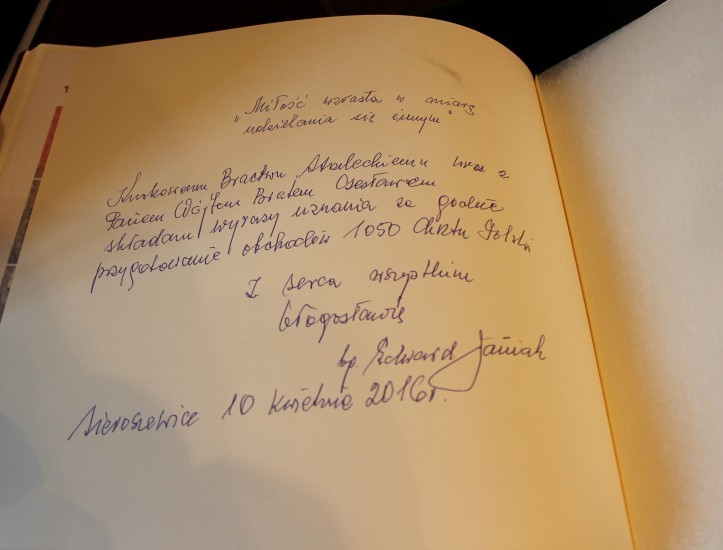 "Miłość wzrasta w miarę
udzielania się innym"
Kurkowemu Bractwu Strzeleckiemu wraz z
Panem Wójtem Bratem Czesławem
składam wyrazy uznania za godne
przygotowanie obchodów 1050 Chrztu Polski
Z serca wszystkim
błogosławię
bp. Edward Janiak
Sieroszewice 10 kwietnia 2016 r.
1